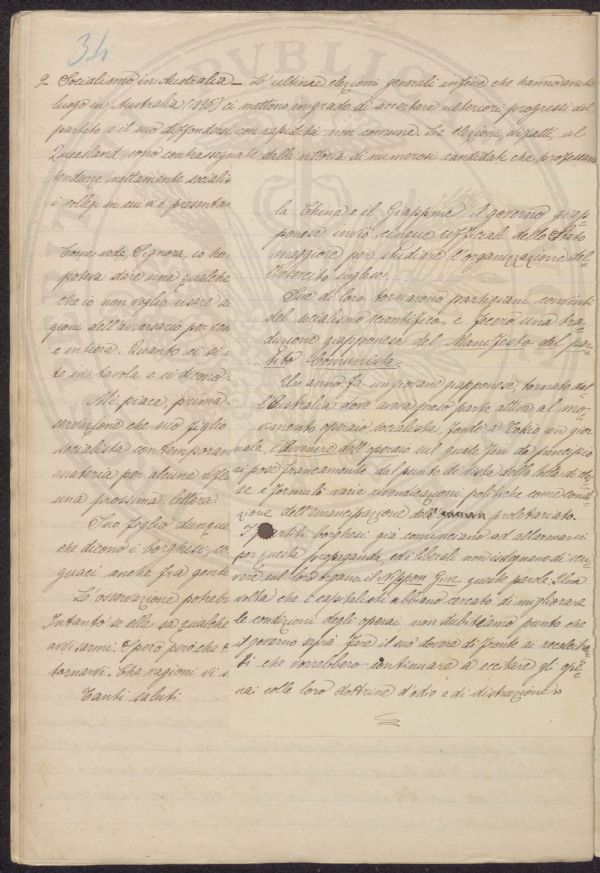 34
9- Socialismo in Australia - L'ultime elezioni generali infine che hanno avuto
luogo in Australia (1895) ci mettono in grado di accertare ulteriori progressi del
partito e il suo diffondersi con rapidità non comune. Le elezioni, difatti, al
Queesland, sono contrassegnate dalla vittoria di numerosi candidati che professano
tendenze nettamente socialis
i collegi in cui si è presentat
Come vede, Signora, io ho
poteva dare una qualche
che io non voglio usare
gioni dell'avversario per
e intiera. Quanto ci si
te in tavola e si dicono
Mi piace, prima
servazione che suo figlio
socialista contemporan
materia per alcune rifle
una prossima lettera.
Suo figlio dunque
che dicono i borghesi, co
guaci anche fra gente
La osservazione potreb
Intanto se ella sa qualche
avvisarmi. Spero però che
tornarvi. Che ragioni vi s
Tanti saluti.
la China e il Giappone il governo giap-
ponese inviò cinque ufficiali dello Stato
maggiore per studiare l'organizzazione del-
l'esercito inglese.
Due di loro tornarono partigiani convinti
del socialismo scientifico, e fecero una tra-
duzione giapponese del Manifesto del par-
tito Comunista.
Un anno fa un giovane giapponese, tornato dal-
l'Australia dove aveva preso parte attiva al mo-
vimento operaio socialista, fondò a Tokio un gior-
nale, l'Avvenire dell'operaio sul quale fin da principio
si pose francamente dal punto di vista della lotta di clas-
se e formulò varie rivendicazioni politiche come condi-
zione dell'emancipazione del proletariato.
I partiti borghesi già cominciano ad allarmarsi
per questa propaganda, ed i liberali non isdegnano di scri-
vere sul loro organo il Nippon Jive queste parole: Una
volta che i capitalisti abbiano cercato di migliorare
le condizioni degli operai non dubitiamo punto che
il governo saprà fare il suo dovere di fronte ai recalcitran-
ti che vorrebbero continuare a eccitare gli ope-
rai colle loro dottrine d'odio e di distruzione »